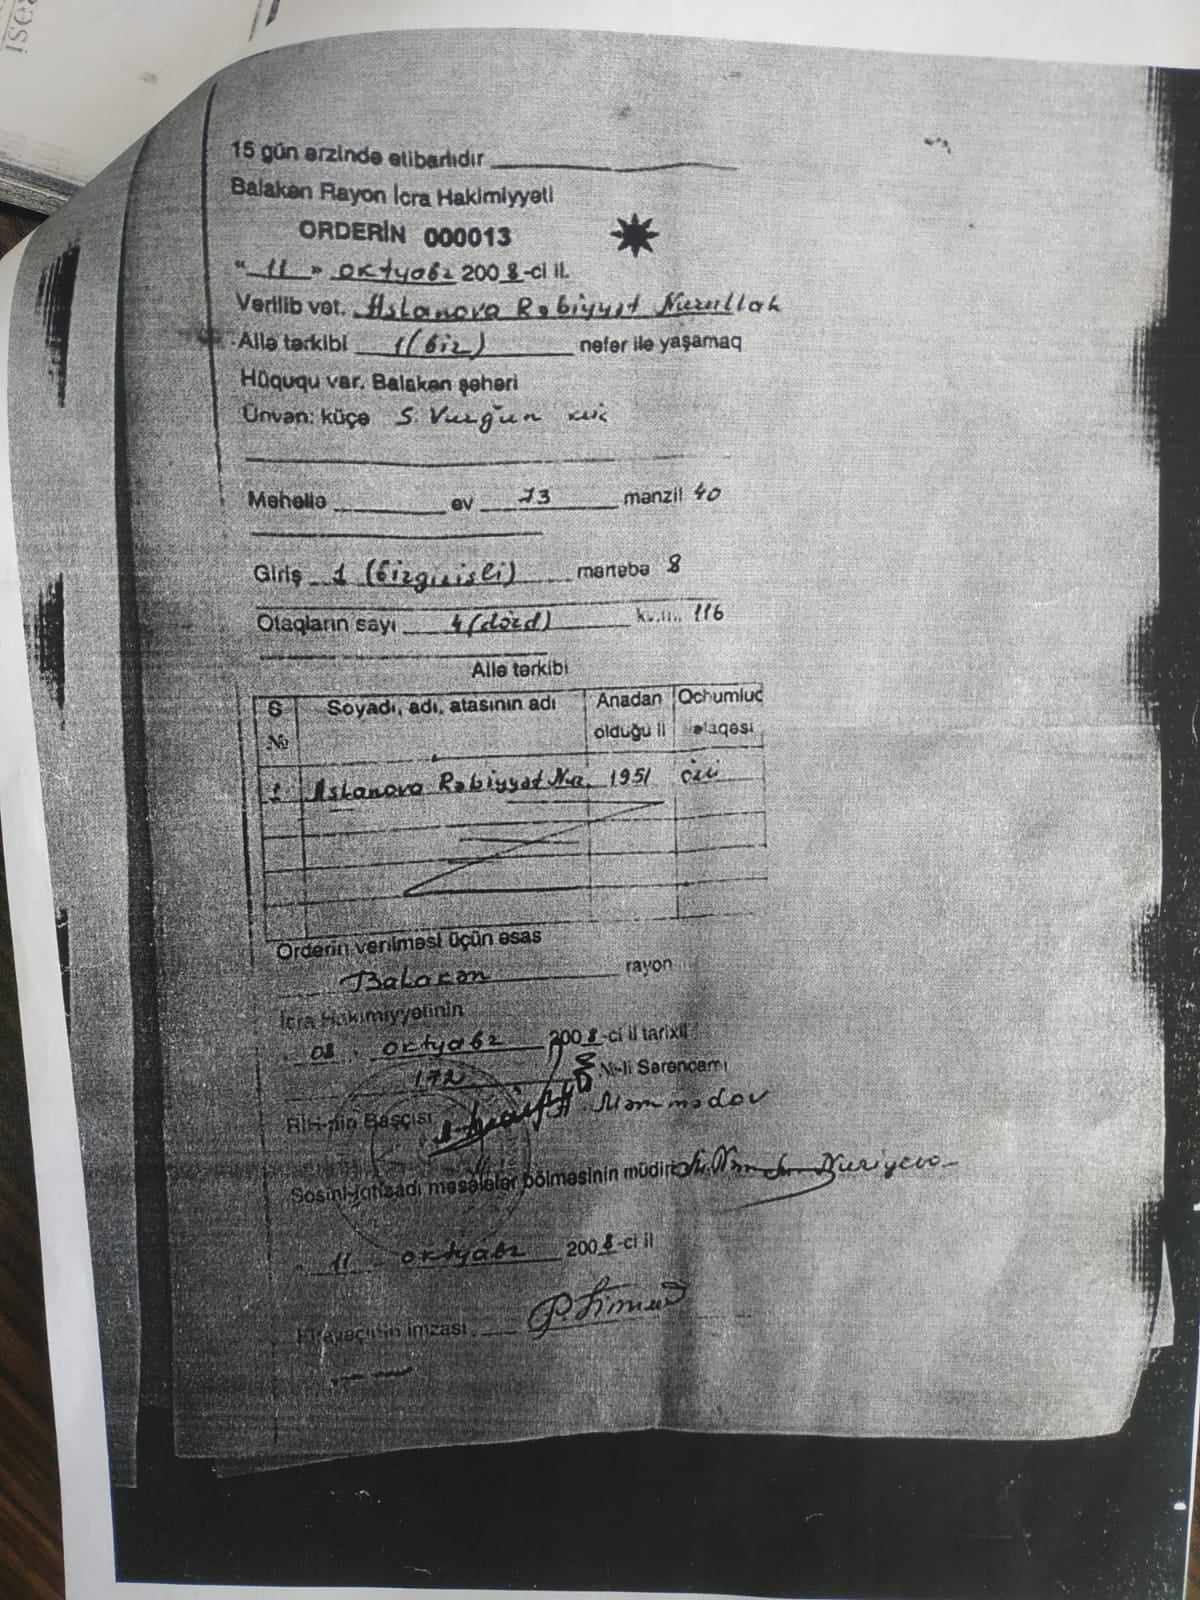 əsi
15 gün ərzində etibarlıdır
Balakən Rayon İcra Hakimiyyəti
ORDERİN 000013
"11" oktyabr 2008-ci il.
Verilib vət. Aslanova Rəbiyyət Nurullah
Ailə tərkibi 1 (bir) nəfər ilə yaşamaq
Hüququ var. Balakən şəhəri
Ünvan: küçə S. Vurğun küç
Məhəllə ev 73 mənzil 40
Giriş 1 (birgirişli) mərtəbə 8
Otaqların sayı 4 (dörd) kv.m. 116
Ailə tərkibi
S № Soyadı, adı, atasının adı Anadan olduğu il Qohumluq əlaqəsi
1 Aslanova Rəbiyyət Nur. 1951 özü
Orderin verilməsi üçün əsas
Balakən rayon
İcra Hakimiyyətinin
08 oktyabr 2008-ci il tarixli
172 №-li Sərəncamı
RİH-nin Başçısı Məmmədov
məsələlər bölməsinin müdiri Nuriyeva
11 oktyabr 2008-ci il
imzası